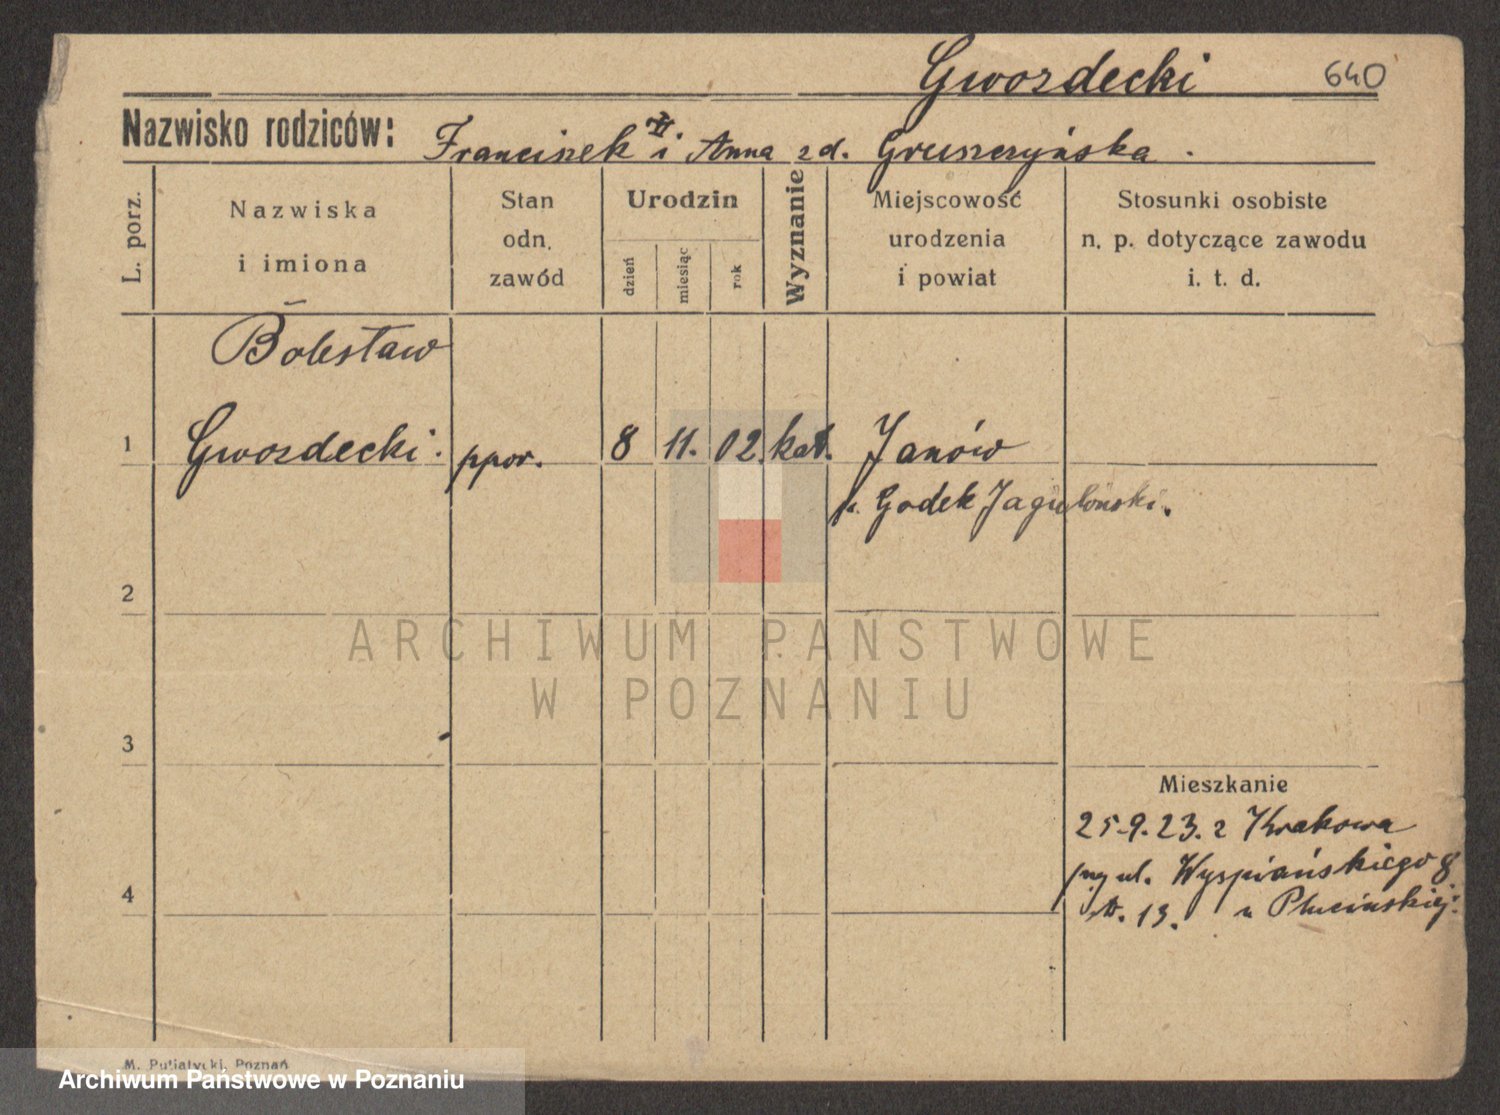 Gwozdecki 640
Nazwisko rodziców: Franciszek i Anna zd. Gruszczyńska.
L. porz.
Nazwiska
i imiona
Stan
odn.
zawód
Urodzin
dzień
miesiąc
rok
Wyznanie
Miejscowość
urodzenia
i powiat
Stosunki osobiste
n. p. dotyczące zawodu
i. t. d.
Bolesław
1 Gwozdecki. ppor. 8 11. 02. kat. Janów
p. Godek Jagieloński.
2
ARCHIWUM PAŃSTWOWE
W POZNANIU
3
Mieszkanie
25-9.23. z Krakowa
przy ul. Wyspiańskiego 8
4
13. u Plucińskiej.
M. Putiatycki, Poznań
Archiwum Państwowe w Poznaniu